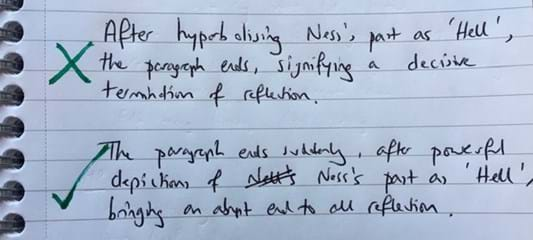 After hyperbolising Ness's part as 'Hell',
the paragraph ends, signifying a decisive
termination of reflection.
The paragraph ends suddenly, after powerful
depiction of Ness's part as 'Hell',
bringing an abrupt end to all reflection.